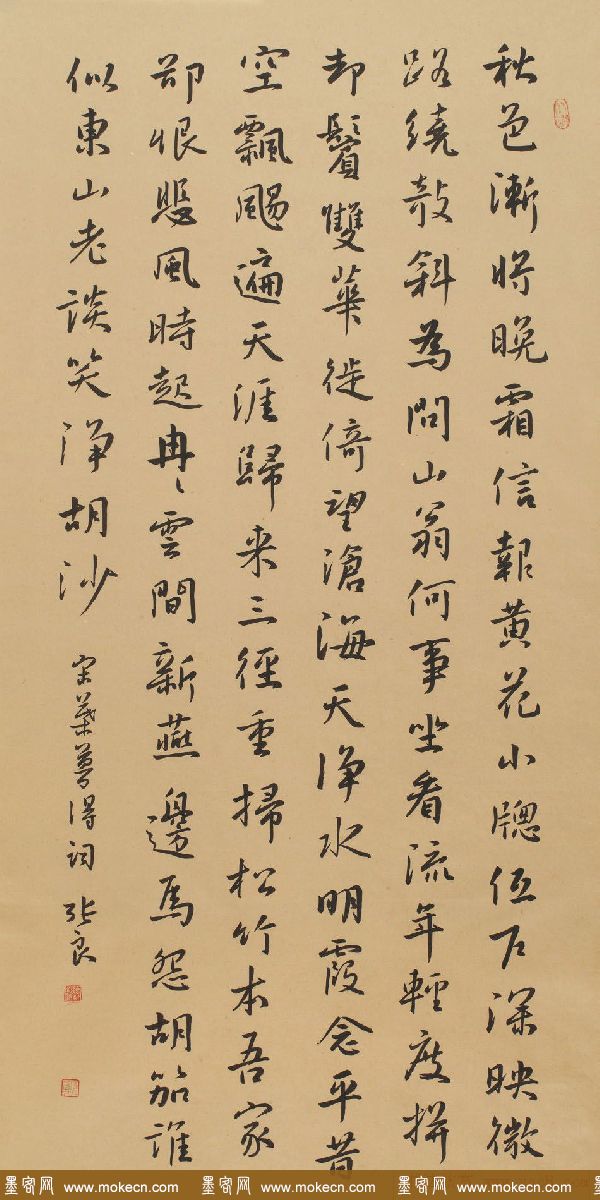 秋色漸將晚霜信報黄花小牕低戶深映微
路繞敧斜為問山翁何事坐看流年輕度拚
却鬢雙華徙倚望滄海天浄水明霞念平昔
空飄颺遍天涯歸来三徑重掃松竹本吾家
卻恨悲風時起冉〻雲間新燕邊馬怨胡笳誰
似東山老談笑浄胡沙
宋葉夢得詞 張良
墨客网 www.mokecn.com 墨客网 www.mokecn.com 墨客网 www.mokecn.com